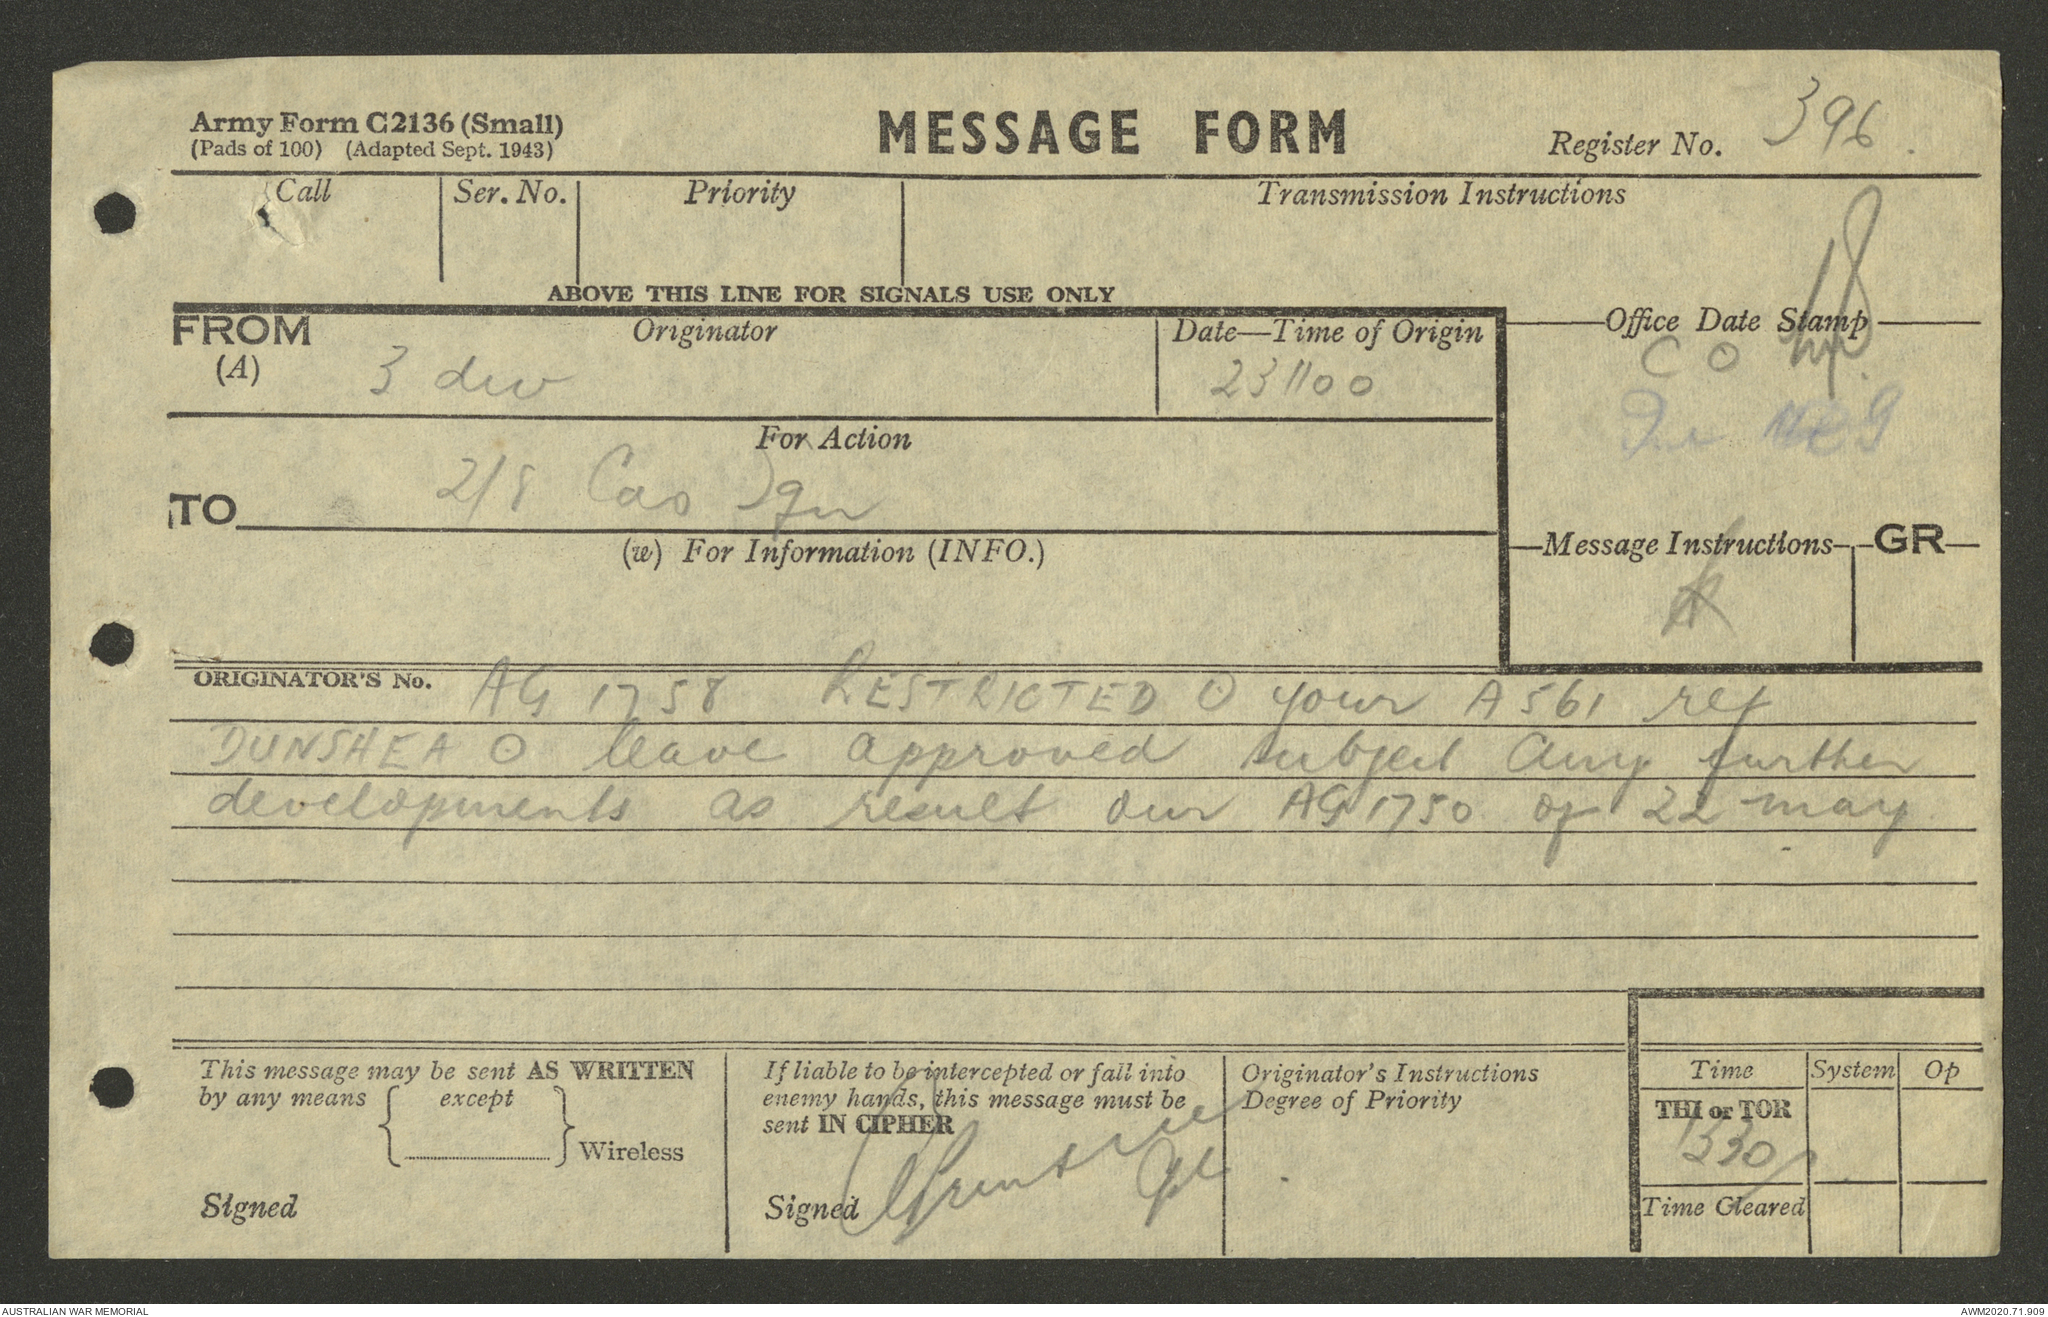 Army Form C2136 (Small)
(Pads of 100) (Adapted Sept. 1943)
MESSAGE FORM
Register No. 396.
Call
Ser. No.
Priority
Transmission Instructions
ABOVE THIS LINE FOR SIGNALS USE ONLY
FROM
(A)
Originator
3 div
Date—Time of Origin
231100
Office Date Stamp
CO
For Action
TO
2/8 Cdo Sqn
(w) For Information (INFO.)
Message Instructions
GR
ORIGINATOR'S No. AG 1758 RESTRICTED ⊙ your A561 ref
DUNSHEA ⊙ leave approved subject any further
developments as result our AG1750 of 22 may
This message may be sent AS WRITTEN
by any means except
Wireless
Signed
If liable to be intercepted or fall into
enemy hands, this message must be
sent IN CIPHER
Signed
Originator's Instructions
Degree of Priority
Time System Op
THI or TOR
1330
Time Cleared
AUSTRALIAN WAR MEMORIAL
AWM2020.71.909